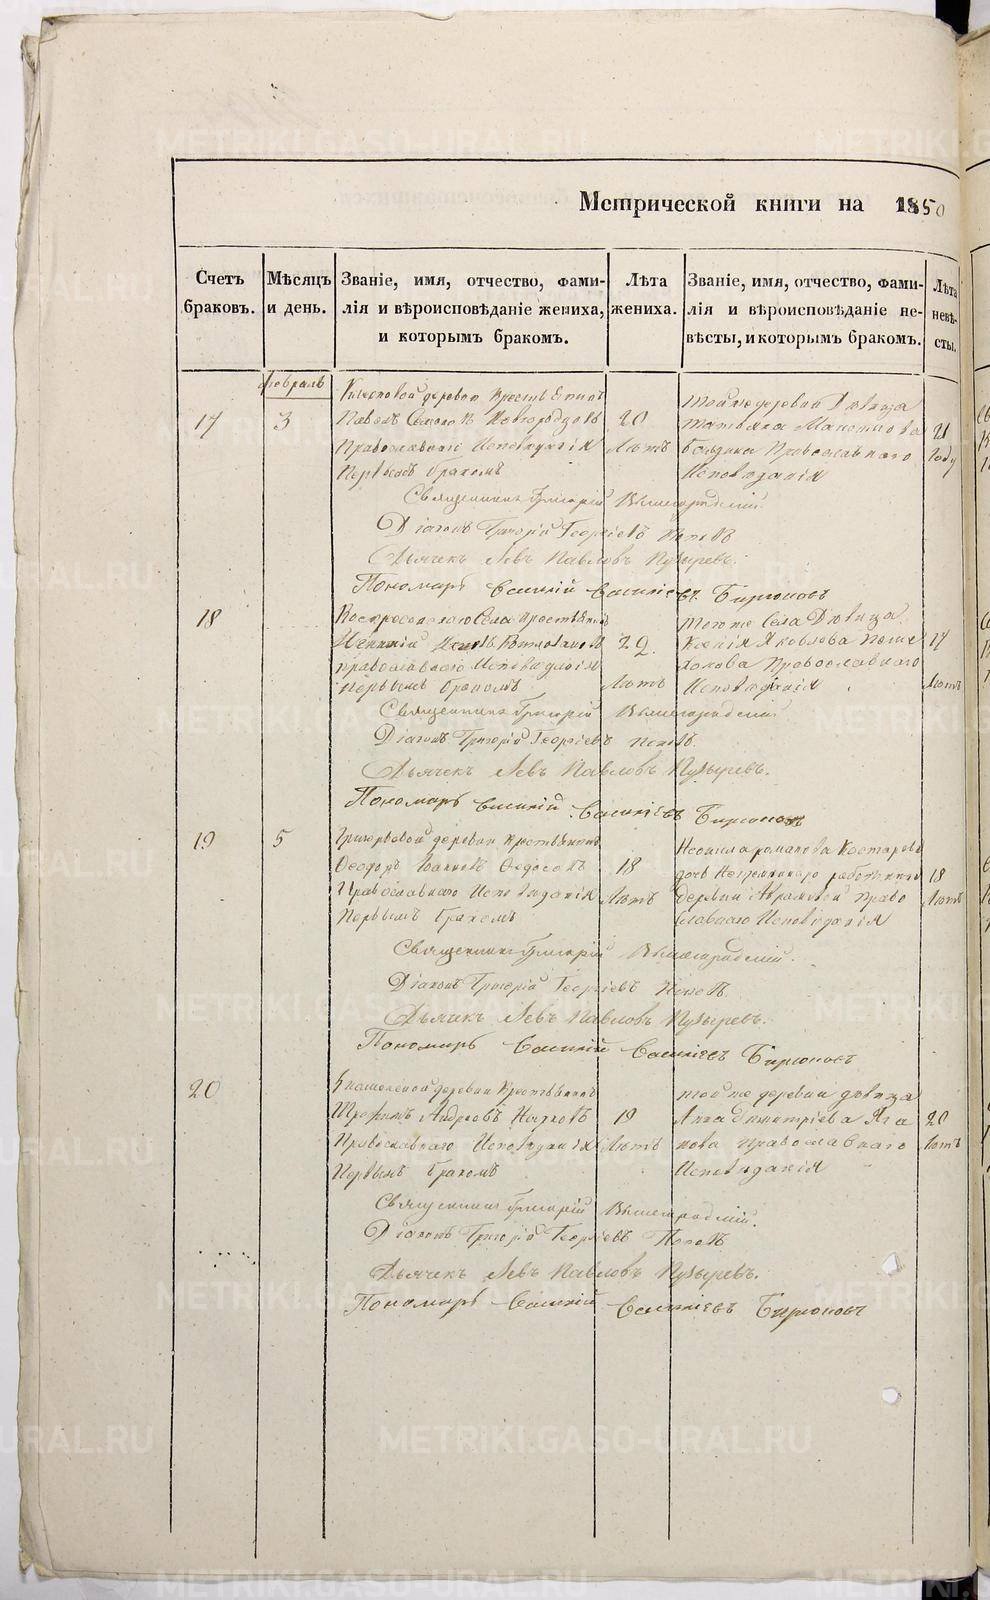 METRIKI.GASO-URAL.RU
Метрической книги на 1850
Счетъ браковъ.
Мѣсяцъ и день.
Званіе, имя, отчество, фами-
лія и вѣроисповѣданіе жениха,
и которымъ бракомъ.
Лѣта жениха.
Званіе, имя, отчество, фами-
лія и вѣроисповѣданіе не-
вѣсты, и которымъ бракомъ.
Лѣта невѣ-
сты.
февраль
17
3
деревни
Павелъ Новгородцовъ
Православнаго Исповѣданія
Первымъ бракомъ
20
Лѣтъ
тойже деревни Дѣвица
Татьяна
Православнаго
Исповѣданія
21
Году
Священникъ Григорій Вышегородскій
Діаконъ Григорій Георгіевъ Поповъ
Дьячекъ Левъ Павловъ Пузыревъ.
Пономарь Василій Васильевъ Бирюковъ
18
Села
православнаго Исповѣданія
первымъ бракомъ
22.
Лѣтъ
Тогоже Села Дѣвица
Ксенія Яковлева
Православнаго
Исповѣданія
17
Лѣтъ
Священникъ Григорій Вышегородскій
Діаконъ Григорій Георгіевъ Поповъ.
Дьячекъ Левъ Павловъ Пузыревъ.
Пономарь Василій Васильевъ Бирюковъ
19
5
Григорьевой деревни
Феодоръ Іоанновъ Федосовъ
Православнаго Исповѣданія
Первымъ бракомъ
18
Лѣтъ
Неонила романова Костарева
дочь работника
деревни Абрамовой право
славнаго Исповѣданія
18
Лѣтъ
Священникъ Григорій Вышегородскій.
Діаконъ Григорій Георгіевъ Поповъ
Дьячекъ Левъ Павловъ Пузыревъ.
Пономарь Василій Васильевъ Бирюковъ
20
деревни
Андреевъ
Православнаго Исповѣданія
Первымъ бракомъ
19
Лѣтъ
той же деревни дѣвица
Анна димитріева
православнаго
Исповѣданія
20
Лѣтъ
Священникъ Григорій Вышегородскій.
Діаконъ Григорій Георгіевъ Поповъ
Дьячекъ Левъ Павловъ Пузыревъ.
Пономарь Василій Васильевъ Бирюковъ